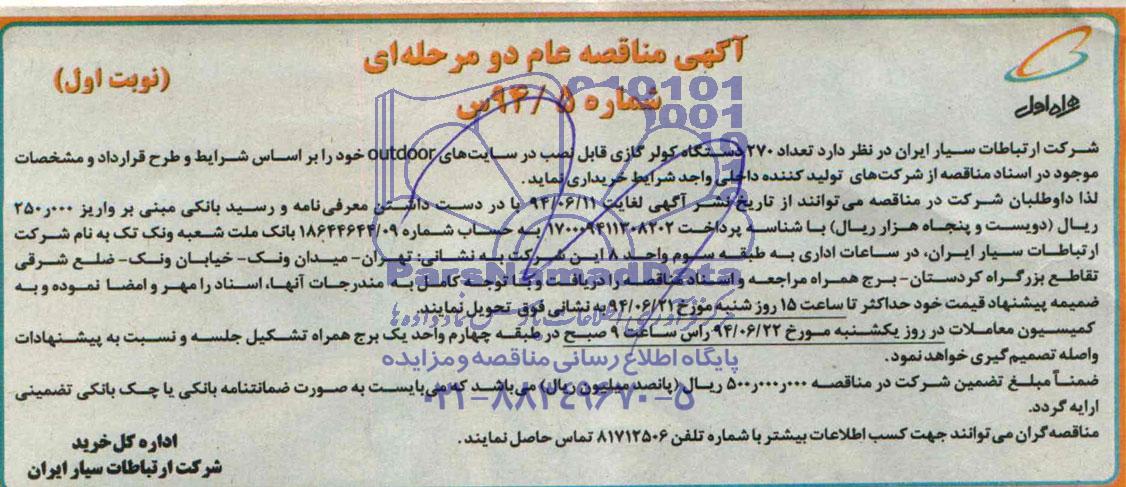 آگهی مناقصه عام دو مرحله‌ای
شماره ۵ /۹۴س
(نوبت اول)
همراه اول
شرکت ارتباطات سیار ایران در نظر دارد تعداد ۲۷۰ دستگاه کولر گازی قابل نصب در سایت‌های outdoor خود را بر اساس شرایط و طرح قرارداد و مشخصات
موجود در اسناد مناقصه از شرکت‌های تولید کننده داخلی واجد شرایط خریداری نماید.
لذا داوطلبان شرکت در مناقصه می‌توانند از تاریخ نشر آگهی لغایت ۹۴/۰۶/۱۱ با در دست داشتن معرفی‌نامه و رسید بانکی مبنی بر واریز ۲۵۰ر۰۰۰
ریال (دویست و پنجاه هزار ریال) با شناسه پرداخت ۱۷۰۰۰۹۴۱۱۳۰۸۲۰۲ به حساب شماره ۱۸۶۴۴۶۴۴/۰۹ بانک ملت شعبه ونک تک به نام شرکت
ارتباطات سیار ایران، در ساعات اداری به طبقه سوم واحد ۸ این شرکت به نشانی: تهران- میدان ونک- خیابان ونک- ضلع شرقی
تقاطع بزرگراه کردستان- برج همراه مراجعه و اسناد مناقصه را دریافت و با توجه کامل به مندرجات آنها، اسناد را مهر و امضا نموده و به
ضمیمه پیشنهاد قیمت خود حداکثر تا ساعت ۱۵ روز شنبه مورخ ۹۴/۰۶/۲۱ به نشانی فوق تحویل نمایند.
کمیسیون معاملات در روز یکشنبه مورخ ۹۴/۰۶/۲۲ راس ساعت ۹ صبح در طبقه چهارم واحد یک برج همراه تشکیل جلسه و نسبت به پیشنهادات
واصله تصمیم گیری خواهد نمود.
ضمناً مبلغ تضمین شرکت در مناقصه ۵۰۰ر۰۰۰ر۰۰۰ ریال (پانصد میلیون ریال) می‌باشد که می‌بایست به صورت ضمانتنامه بانکی یا چک بانکی تضمینی
ارایه گردد.
مناقصه‌گران می‌توانند جهت کسب اطلاعات بیشتر با شماره تلفن ۸۱۷۱۲۵۰۶ تماس حاصل نمایند.
اداره کل خرید
شرکت ارتباطات سیار ایران
ParsNamadData
پایگاه اطلاع رسانی مناقصه و مزایده
۰۲۱-۸۸۳۴۹۶۷۰-۵